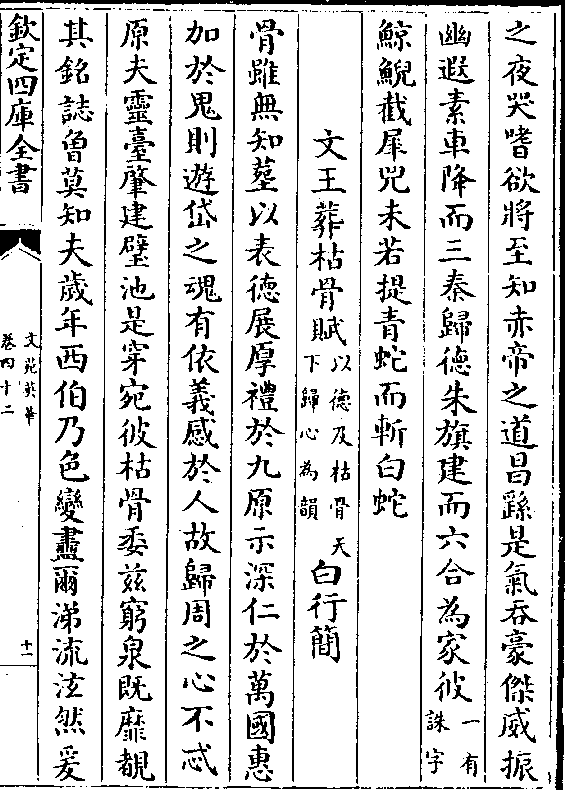 之夜哭嗜欲將至知赤帝之道昌繇是氣吞豪傑威振
幽遐素車降而三秦歸德朱旗建而六合為家彼一有誅字
鯨鯢截犀兕未若提青蛇而斬白蛇
文王葬枯骨賦以德及枯骨天下歸心為韻 白行簡
骨雖無知墓以表德展厚禮於九原示深仁於萬國惠
加於鬼則遊岱之魂有依義感於人故歸周之心不忒
原夫靈臺肇建璧池是穿宛彼枯骨委茲窮泉既靡覩
其銘誌曾莫知夫歲年西伯乃色變衋爾涕流泫然爰
欽定四庫全書
文苑英華
卷四十二
十一